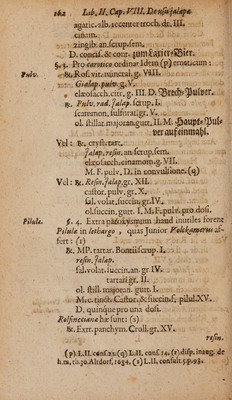 162 Lib. II. Cap. VIII. De usu jalapæ
agaric. alb. recenter troch. dr. III.
cinam.
zingib. an. scrup. sem.
D. concis. & cont. zum Laxier-Bier.
§. 3. Pro carotico ordinat Idem (p) emeticum:
Pulv. ℞. Ros. vit. mineral. g. VIII.
Gialap. pulv. g. V.
elæosacch. citr. g. III. D. Brech-Pulver.
℞. Pulv. rad. jalap. scrup. I.
scammon. sulfurat. gr. V.
ol. stillat. majoran. gutt. II. M. Haupt-Pulver auf einmahl.
Vel: ℞. cryst. tart.
jalap. resin. an. scrup. sem.
elæosacch. cinamom. g. VII.
M. F. pulv. D. in convulsione. (q)
Vel: ℞. Resin. jalap. gr. XII.
castor. pulv. gr. X.
sal. volat. succin. gr. IV.
ol. succin. gutt. I. M. F. pulv. pro dosi.
Pilulæ. §. 4. Extra paroxysmum haud inutiles forent
Pilulæ in lethargo, quas Junior Volckamerus affert: (r)
℞. MP. tartar. Bontii scrup. I.
resin. jalap.
sal. volat. succin. an. gr. IV.
tartari gr. II.
ol. still. majoran. gutt. I.
M. c. tinct. Castor. & succin. f. pilul. XV.
D. quinque pro una dosi.
Rolfincianæ hæ sunt: (s)
℞. Extr. panchym. Croll. gr. XV.
resin.
(p) L. II. cons. 21. (q) L. II. cons. 14. (r) disp. inaug. de
h. m. th. 70. Altdorf. 1684. (s) L. II. consult. 5. p. 93.